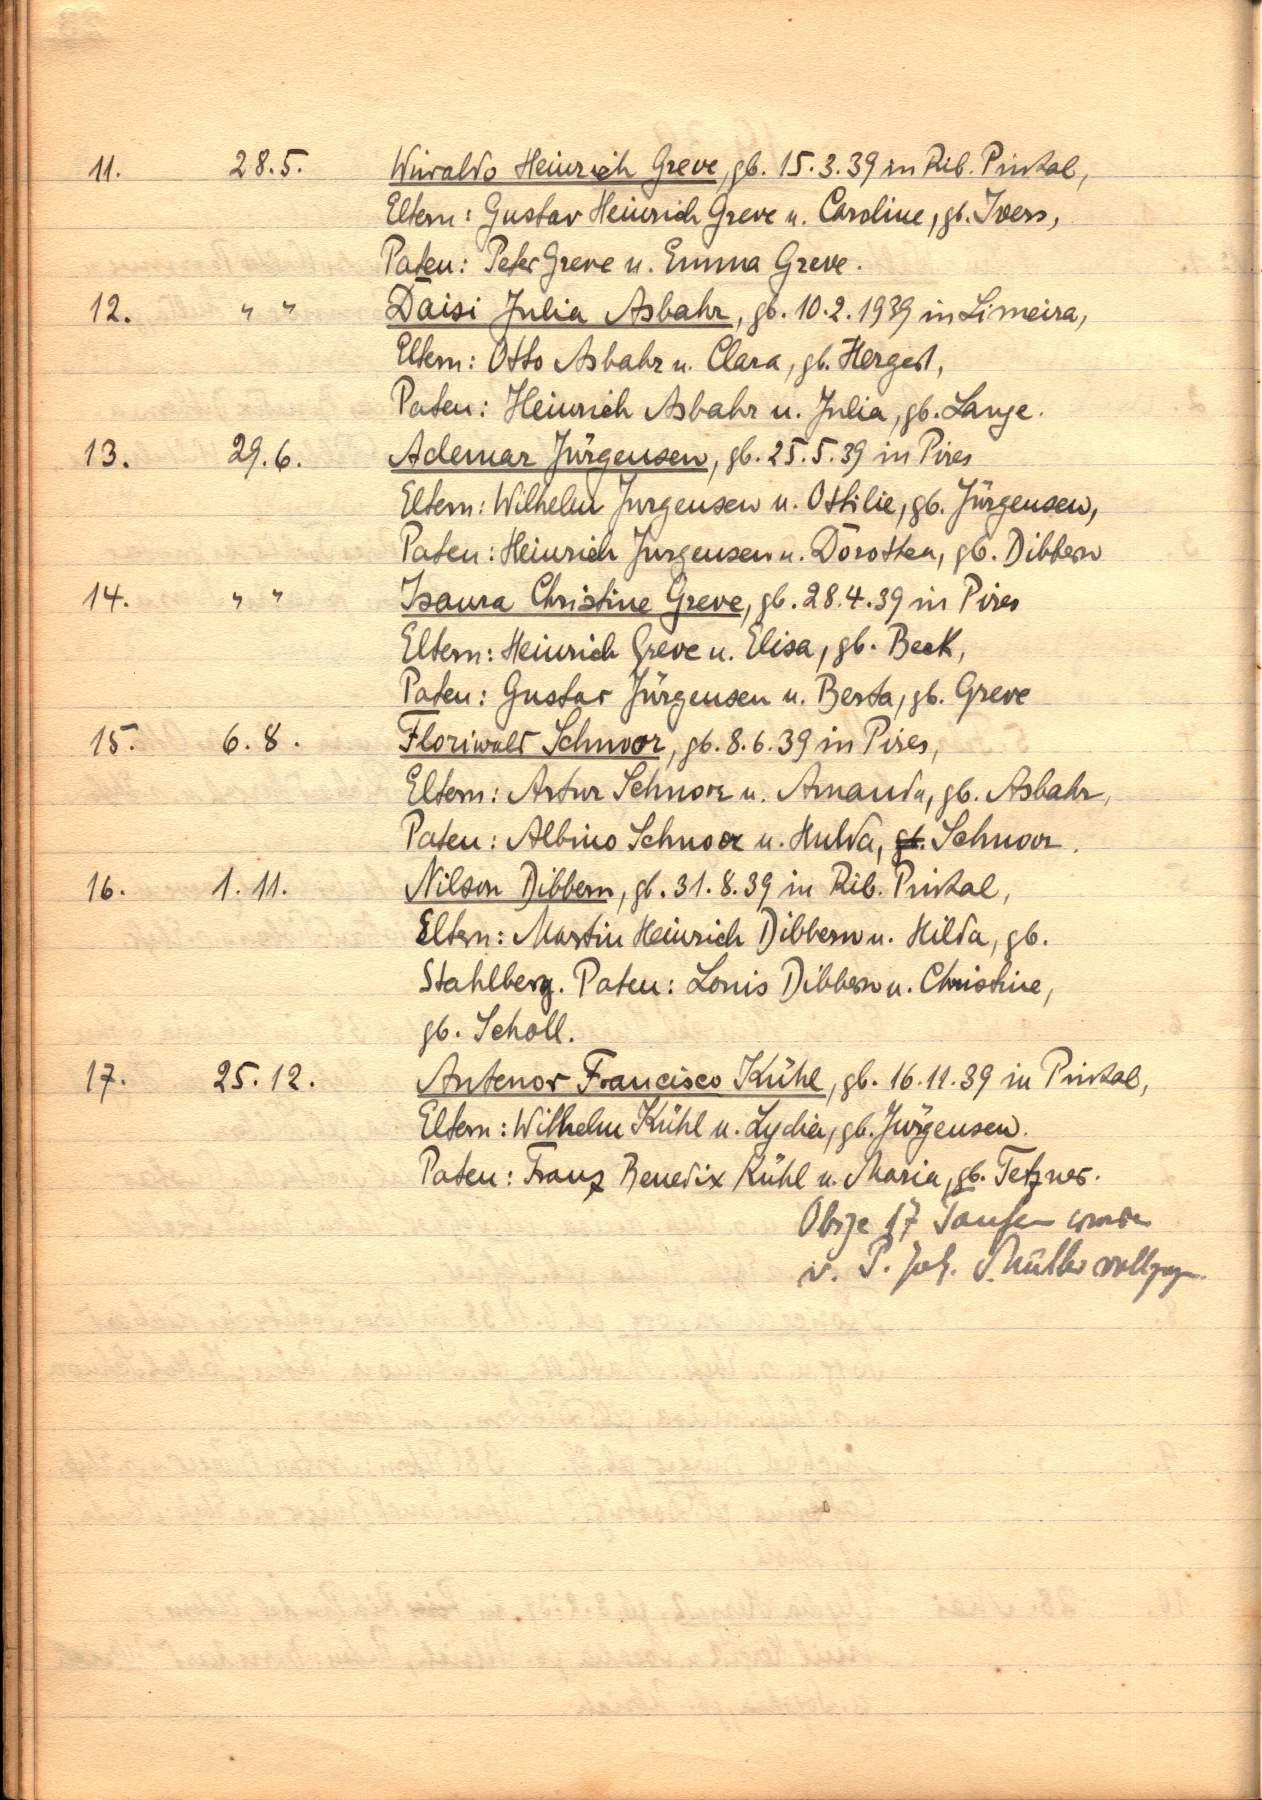 11. 28.5. Wivaldo Heinrich Greve, gb. 15.3.39 in Rib. Pinkal,
Eltern: Gustav Heinrich Greve u. Caroline, gb. Ivers,
Paten: Peter Greve u. Emma Greve.
12. " " Daisi Julia Asbahr, gb. 10.2.1939 in Limeira,
Eltern: Otto Asbahr u. Clara, gb. Hergert,
Paten: Heinrich Asbahr u. Julia, gb. Lange.
13. 29.6. Ademar Jürgensen, gb. 25.5.39 in Pires
Eltern: Wilhelm Jurgensen u. Ottilie, gb. Jürgensen,
Paten: Heinrich Jurgensen u. Dorothea, gb. Dibbern
14. " " Isaura Christine Greve, gb. 28.4.39 in Pires
Eltern: Heinrich Greve u. Elisa, gb. Beck,
Paten: Gustav Jürgensen u. Berta, gb. Greve
15. 6.8. Floriwald Schnoor, gb. 8.6.39 in Pires,
Eltern: Artur Schnoor u. Amanda, gb. Asbahr,
Paten: Albino Schnoor u. Hulda, gb. Schnoor.
16. 1.11. Nilson Dibbern, gb. 31.8.39 in Rib. Pinkal,
Eltern: Martin Heinrich Dibbern u. Hilda, gb.
Stahlberg. Paten: Louis Dibbern u. Christine,
gb. Scholl.
17. 25.12. Antenor Francisco Kühl, gb. 16.11.39 in Pinkal,
Eltern: Wilhelm Kühl u. Lydia, gb. Jürgensen.
Paten: Franz Benedix Kühl u. Maria, gb. Tetzner.
Obige 17 Taufen wurden
v. P. Joh. Müller vollzogen.